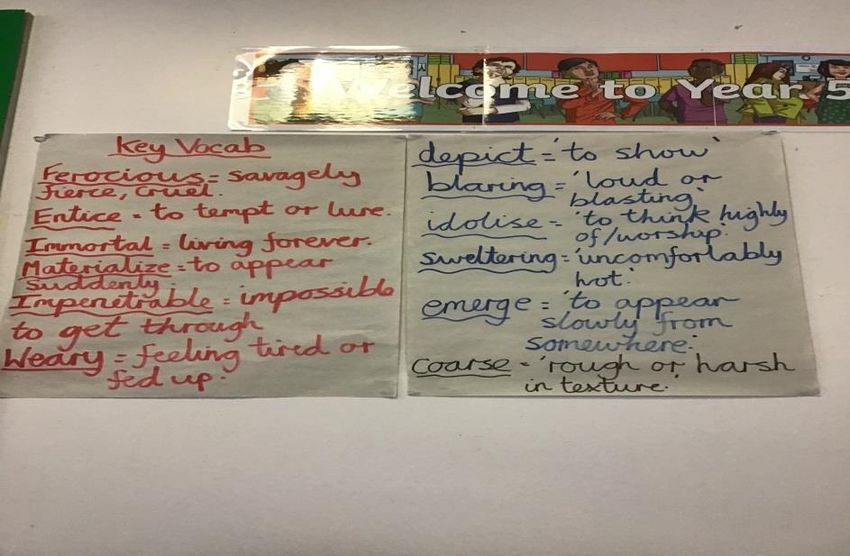 Welcome to Year 5
Key Vocab
Ferocious = savagely
fierce, cruel.
Entice = to tempt or lure.
Immortal = living forever.
Materialize = to appear
suddenly.
Impenetrable = impossible
to get through
Weary = feeling tired or
fed up.
depict = 'to show'
blaring = 'loud or
blasting'
idolise = 'to think highly
of/worship.'
sweltering = 'uncomfortably
hot.'
emerge = 'to appear
slowly from
somewhere.'
Coarse = 'rough or harsh
in texture.'